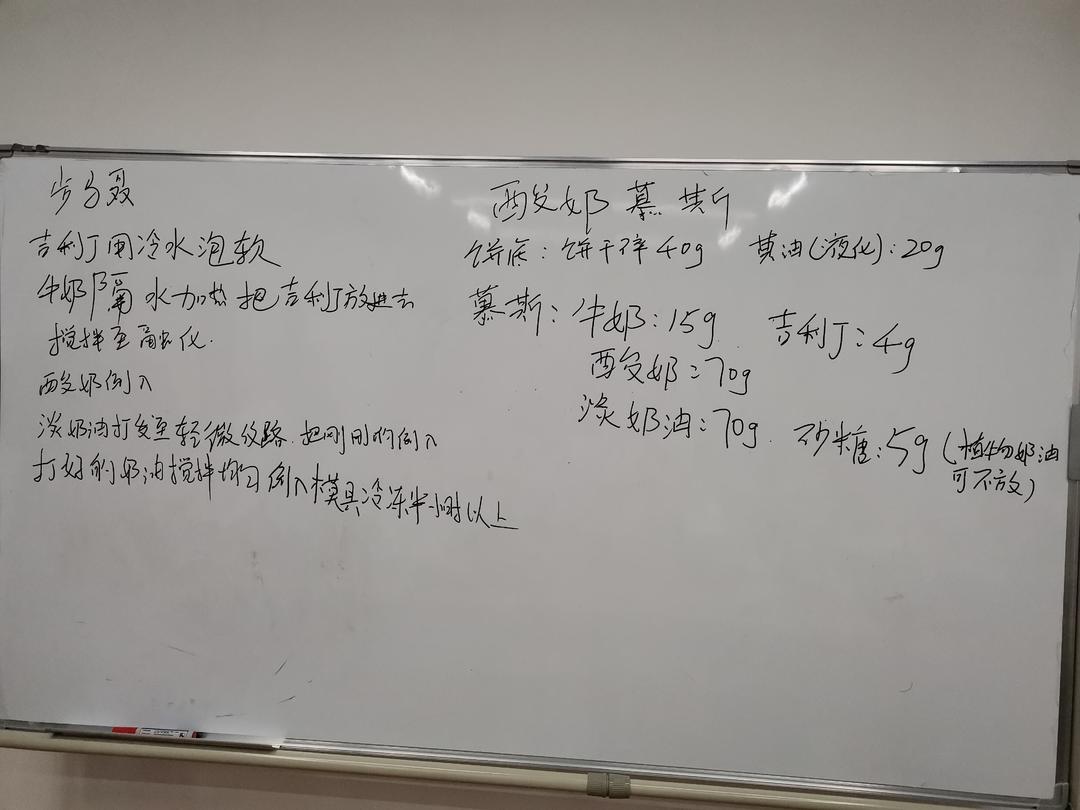 步骤
吉利丁用冷水泡软
牛奶隔水加热把吉利丁放进去
搅拌至融化.
酸奶倒入
淡奶油打发至轻微纹路.把刚刚的倒入
打好的奶油搅拌均匀倒入模具冷冻半小时以上
酸奶慕斯
饼底:饼干碎40g 黄油(液化):20g
慕斯:牛奶:15g 吉利丁:4g
酸奶:70g
淡奶油:70g. 砂糖:5g(植物奶油
可不放)